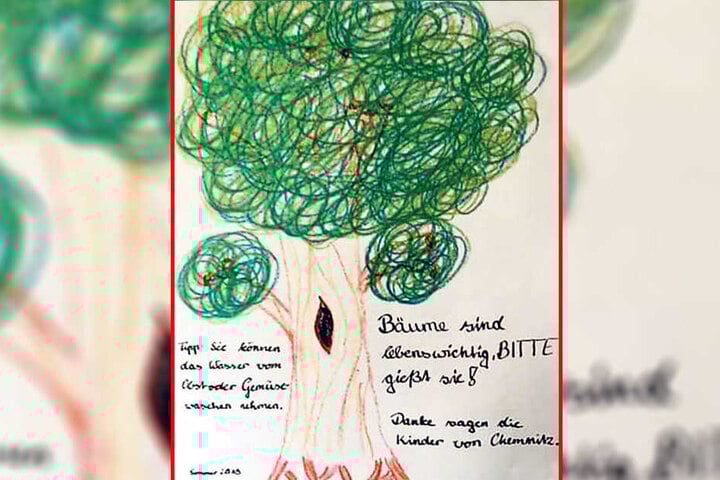 Bäume sind
lebenswichtig, BITTE
gießt sie!
Tipp Sie können
das Wasser vom
Obst oder Gemüse-
waschen nehmen.
Danke sagen die
Kinder von Chemnitz.
Sommer 2019